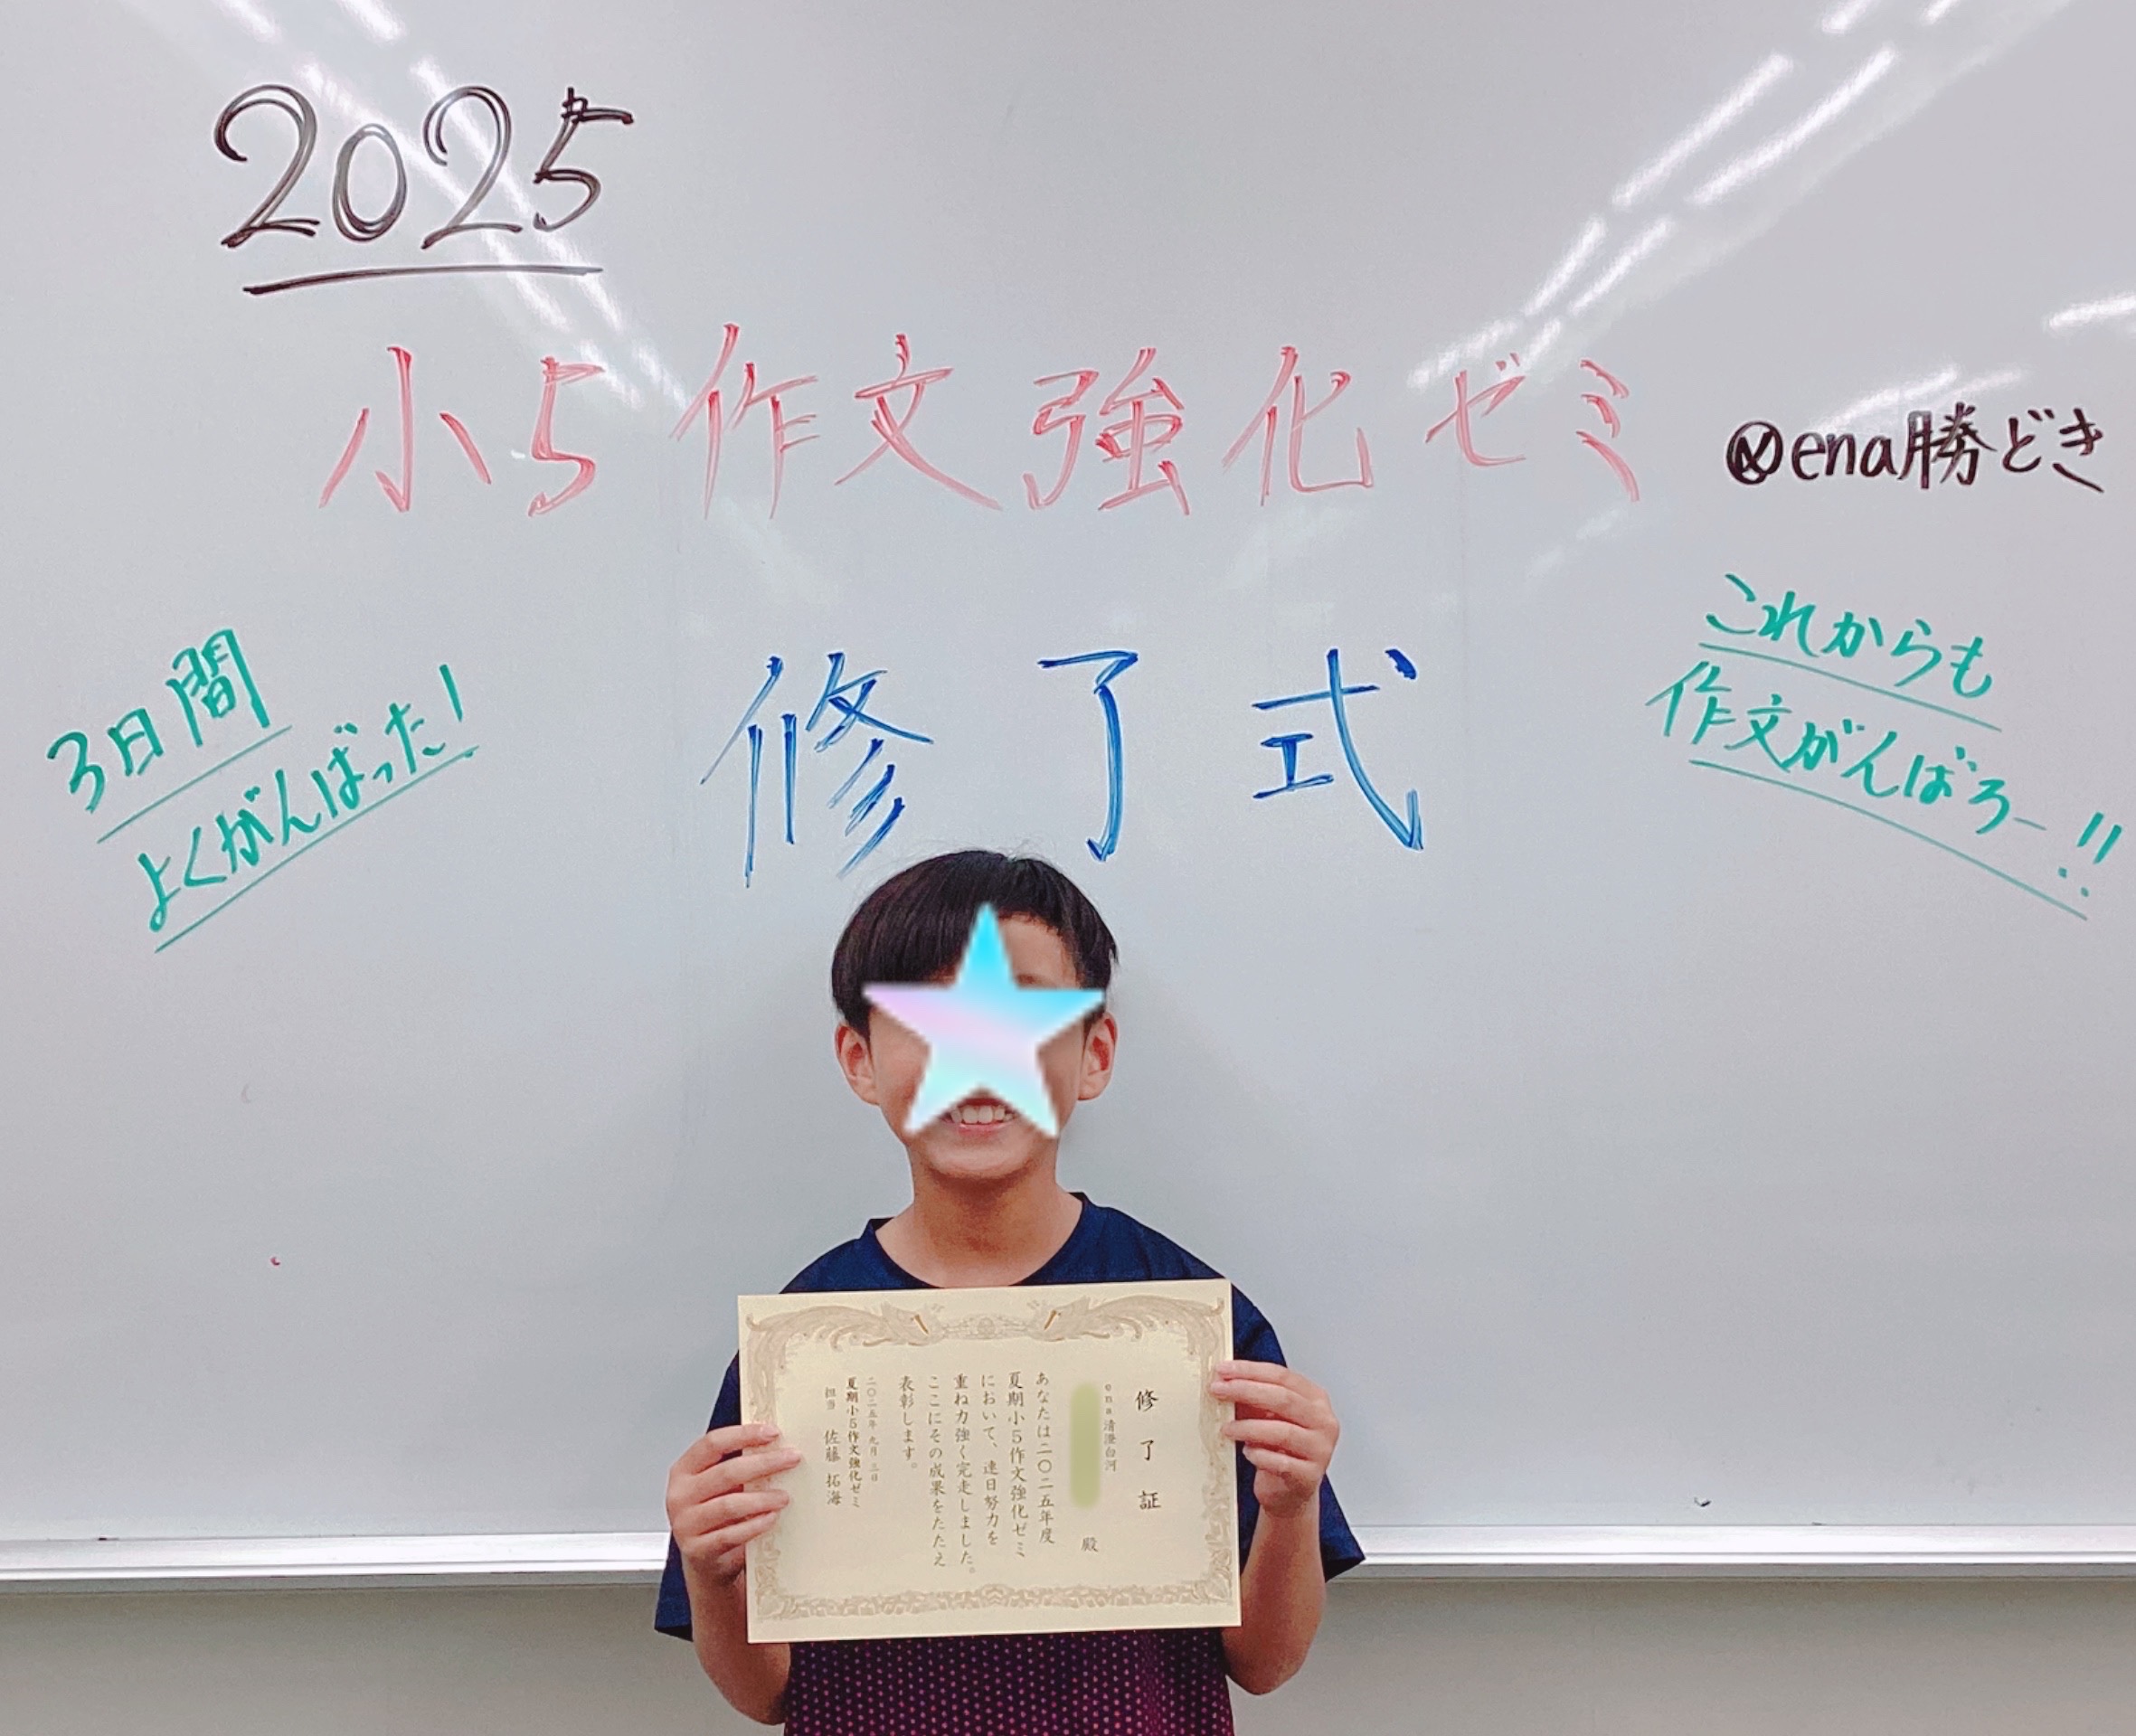 2025
小5作文強化ゼミ
@ena勝どき
修了式
3日間
よくがんばった!
これからも
作文がんばろー!!
修了証
ena清澄白河
殿
あなたは二〇二五年度
夏期小5作文強化ゼミ
において、連日努力を
重ね力強く完走しました。
ここにその成果をたたえ
表彰します。
二〇二五年 九月 三日
夏期小5作文強化ゼミ
担当 佐藤 拓海